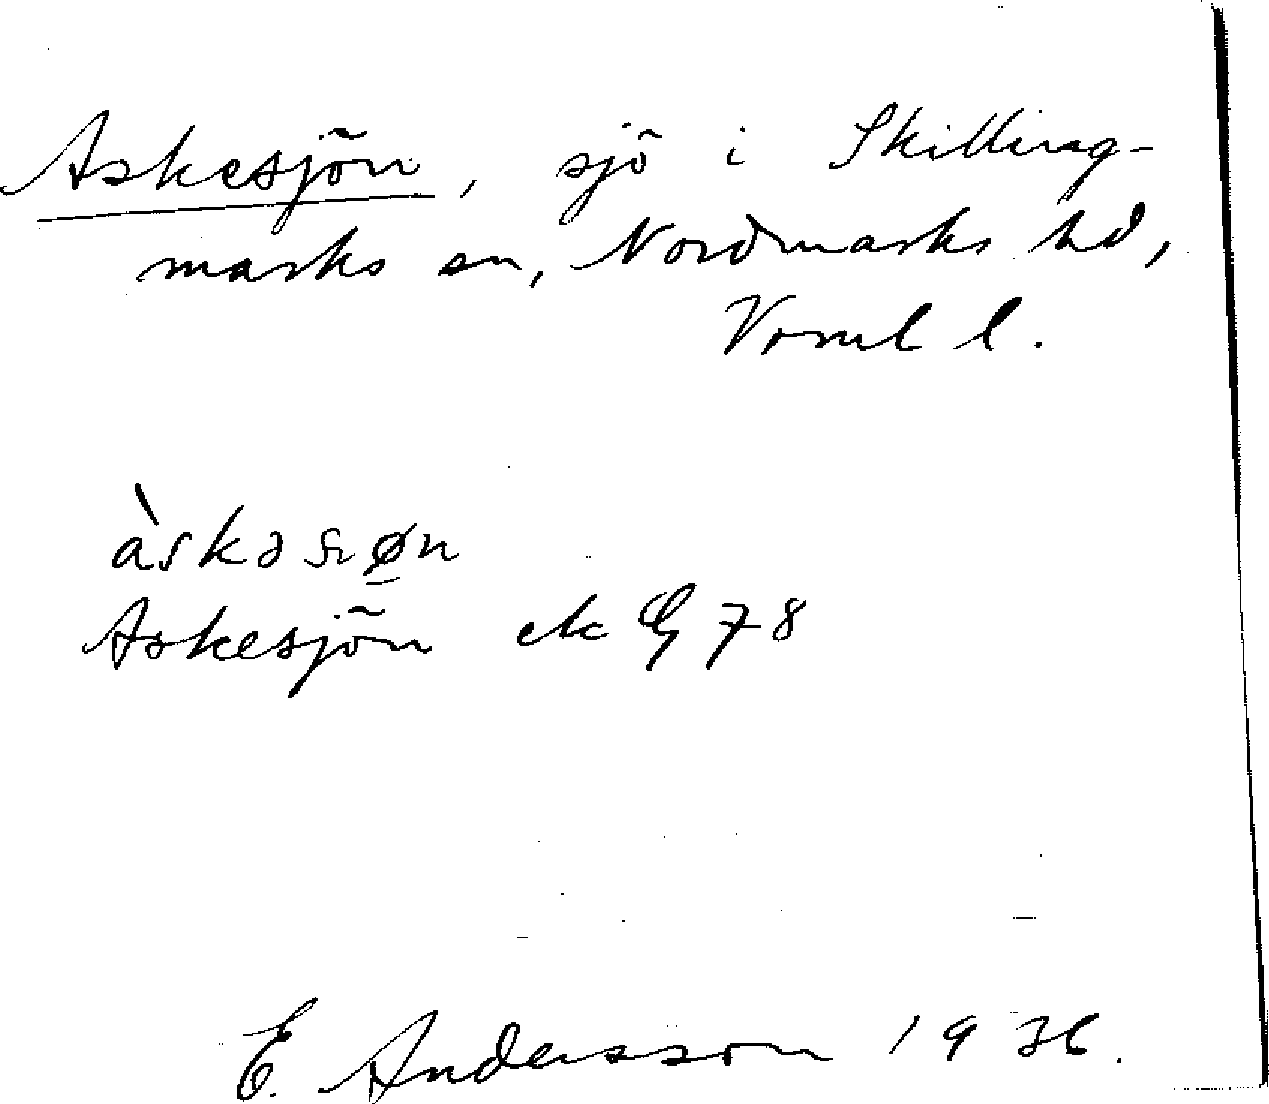 Askesjön, sjö i Skilling-
marks sn, Nordmarks hd,
Vrml l.
àskəʃøn
Askesjön ek G 78
E. Andersson 1936.